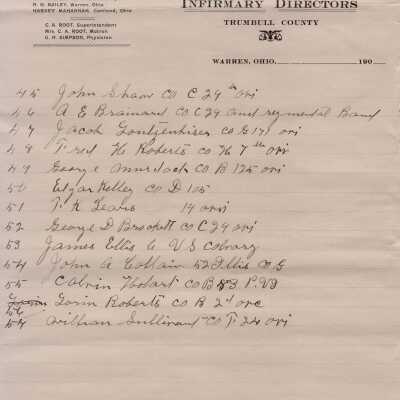 H. B. BAILEY, Warren, Ohio
HARVEY MAHANNAH, Cortland, Ohio
C. A. ROOT, Superintendent
Mrs. C. A. ROOT, Matron
G. H. SIMPSON, Physician
INFIRMARY DIRECTORS
TRUMBULL COUNTY
WARREN, OHIO, 190
45 John Shaw co C 29th ovi
46 A E Brainard co C 29 and regmental Band
47 Jacob co G 171 ovi
48 Fred H Roberts co H 7th ovi
49 George Murdock co B 125 ovi
50 Edgar Kelley co D 105
51 T R 14 ovi
52 George D Brockett co C 29 ovi
53 James Ellis 6 U S calvary
54 John A 52 Ills co G
55 Calvin Hobart co B 53 P.V.
56 Lorin Roberts co B 2d ove
57 William Sullivant co F 24 ovi